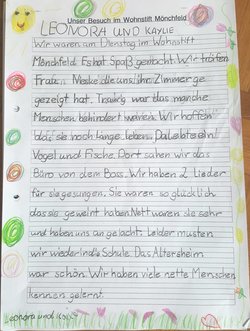 Unser Besuch im Wohnstift Mönchfeld
LEONORA UND KAYLIE
Wir waren am Dienstag im Wohnstift
Mönchfeld. Es hat Spaß gemacht. Wir trafen
Frau Maske die uns ihr Zimmer ge
gezeigt hat. Traurig war das manche
Menschen behindert waren. Wir hoffen
das sie noch lange leben. Da lebte ein
Vogel und Fische. Dort sahen wir das
Büro von dem Boss. Wir haben 2 Lieder
für sie gesungen. Sie waren so glücklich
das sie geweint haben. Nett waren sie sehr
und haben uns an gelacht. Leider musten
wir wieder in die Schule. Das Altersheim
war schön. Wir haben viele nette Menschen
kennen gelernt.
Leonora und